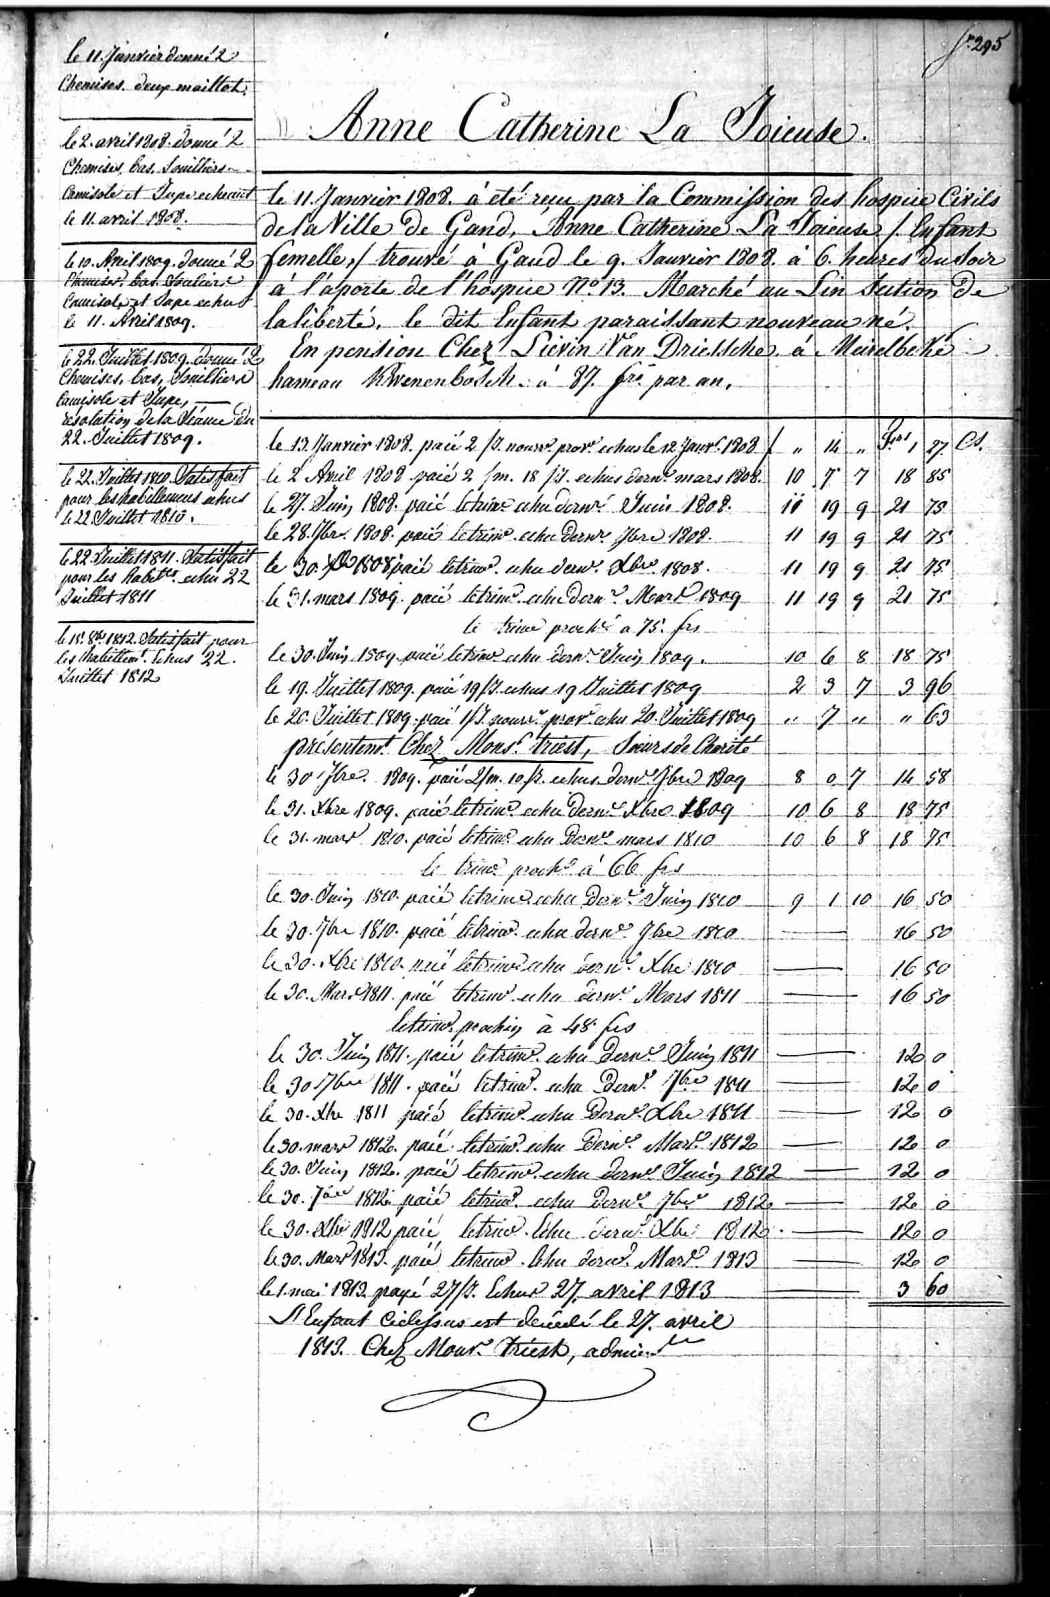 fo. 295
le 11. Janvier donné 2
Chemises. deux maillot.
le 2. avril 1808. donné 2
Chemises, bas, Souilliers
Camisole et Jupe echeant
le 11. avril 1808.
le 10. Avril 1809. donné 2
Chemises. bas. Souliers
Camisole et Jupe echus
le 11. Avril 1809.
le 22. Juillet 1809. donné 2
Chemises, bas, Souilliers
Camisole et Jupe,
résolution de la Séance du
22. Juillet 1809.
le 22. Juillet 1810. Satisfait
pour les habillemens echus
le 22. Juillet 1810.
le 22. Juillet 1811. Satisfait
pour les habitts. echu 22
Juillet 1811
le 15. 8bre 1812. Satisfait pour
les habillemt. Echus 22.
Juillet 1812
Anne Catherine La Joieuse.
le 11. Janvier 1808. à été reçu par la Commission des hospice Civils
de la Ville de Gand, Anne Catherine La Joieuse / Enfant
femelle, / trouvé à Gand le 9. Janvier 1808. à 6. heures du Soir
à l'aporte de l'hospice No 13. Marché au Lin Section de
la liberté. le dit Enfant paraissant nouveau né.
En pension Chez Lievin Van Driessche. à Meirelbeké
hameau Kwenenbosch. à 87. frs. par an.
le 13. Janvier 1808. paié 2 /J. nourr. prov. echus le 12 Janvr. 1808 / " 14 " Frs. 1 27 Cs.
le 2 Avril 1808 paié 2 /m. 18 /J. echus dernr. mars 1808. 10 7 7 18 85
le 27. Juin 1808. paié le trimre. echu dernr. Juin 1808. 11 19 9 21 75
le 28. 7bre. 1808. paié le trimre. echu dernr. 7bre 1808. 11 19 9 21 75
le 30 Xbre 1808 paié le trimre. echu dernr. Xbre. 1808. 11 19 9 21 75
le 31. mars 1809. paié le trimre. echu dernr. Mars 1809 11 19 9 21 75
le trime proche à 75. frs
le 30. Juin 1809. paié le trimre. echu dernr. Juin 1809. 10 6 8 18 75
le 19. Juillet 1809. paié 19 /J. echus 19 Juillet 1809 2 3 7 3 96
le 20. Juillet 1809. paié 1 /J. nourr. prov. echu 20. Juillet 1809 " 7 " " 63
présentemt. Chez Monsr. triest, Sœurs de Charité
le 30 7bre. 1809. paié 2 /m. 10 /J. echus dernr. 7bre 1809 8 0 7 14 58
le 31. Xbre 1809. paié le trimre. echu dernr. Xbre 1809 10 6 8 18 75
le 31. mars 1810. paié le trimre. echu dernr. mars 1810 10 6 8 18 75
le trimre. proche. à 66 frs
le 30. Juin 1810. paié le trimre. echu dernr. Juin 1810 9 1 10 16 50
le 30. 7bre 1810. paié le trimre. echu dernr. 7bre 1810 — 16 50
le 30. Xbre 1810. paié le trimre. echu dernr. Xbre 1810 — 16 50
le 30. Mars 1811. paié le trimre. echu dernr. Mars 1811 — 16 50
le trimre. prochin à 48 frs
le 30. Juin 1811. paié le trimre. echu dernr. Juin 1811 — 12 0
le 30 7bre 1811. paié le trimre. echu dernr. 7bre 1811 — 12 0
le 30. Xbre 1811 paié le trimre. echu dernr. Xbre 1811 — 12 0
le 30. mars 1812. paié. le trimre. echu dernr. Mars. 1812 — 12 0
le 30. Juin 1812. paié le trimre. echu dernr. Juin 1812 — 12 0
le 30. 7bre 1812. paié le trimre. echu dernr. 7bre 1812 — 12 0
le 30. Xbre 1912 paié le trimre. Echu dernr. Xbre 1812. — 12 0
le 30. Mars 1813. paié le trimre. Echu dernr. Mars. 1813 — 12 0
le 1. mai 1813. payé 27 /J. Echus 27. avril 1813 — 3 60
L'Enfant cidessus est décédé le 27. avril
1813. Chez Monsr. Triest, admin.